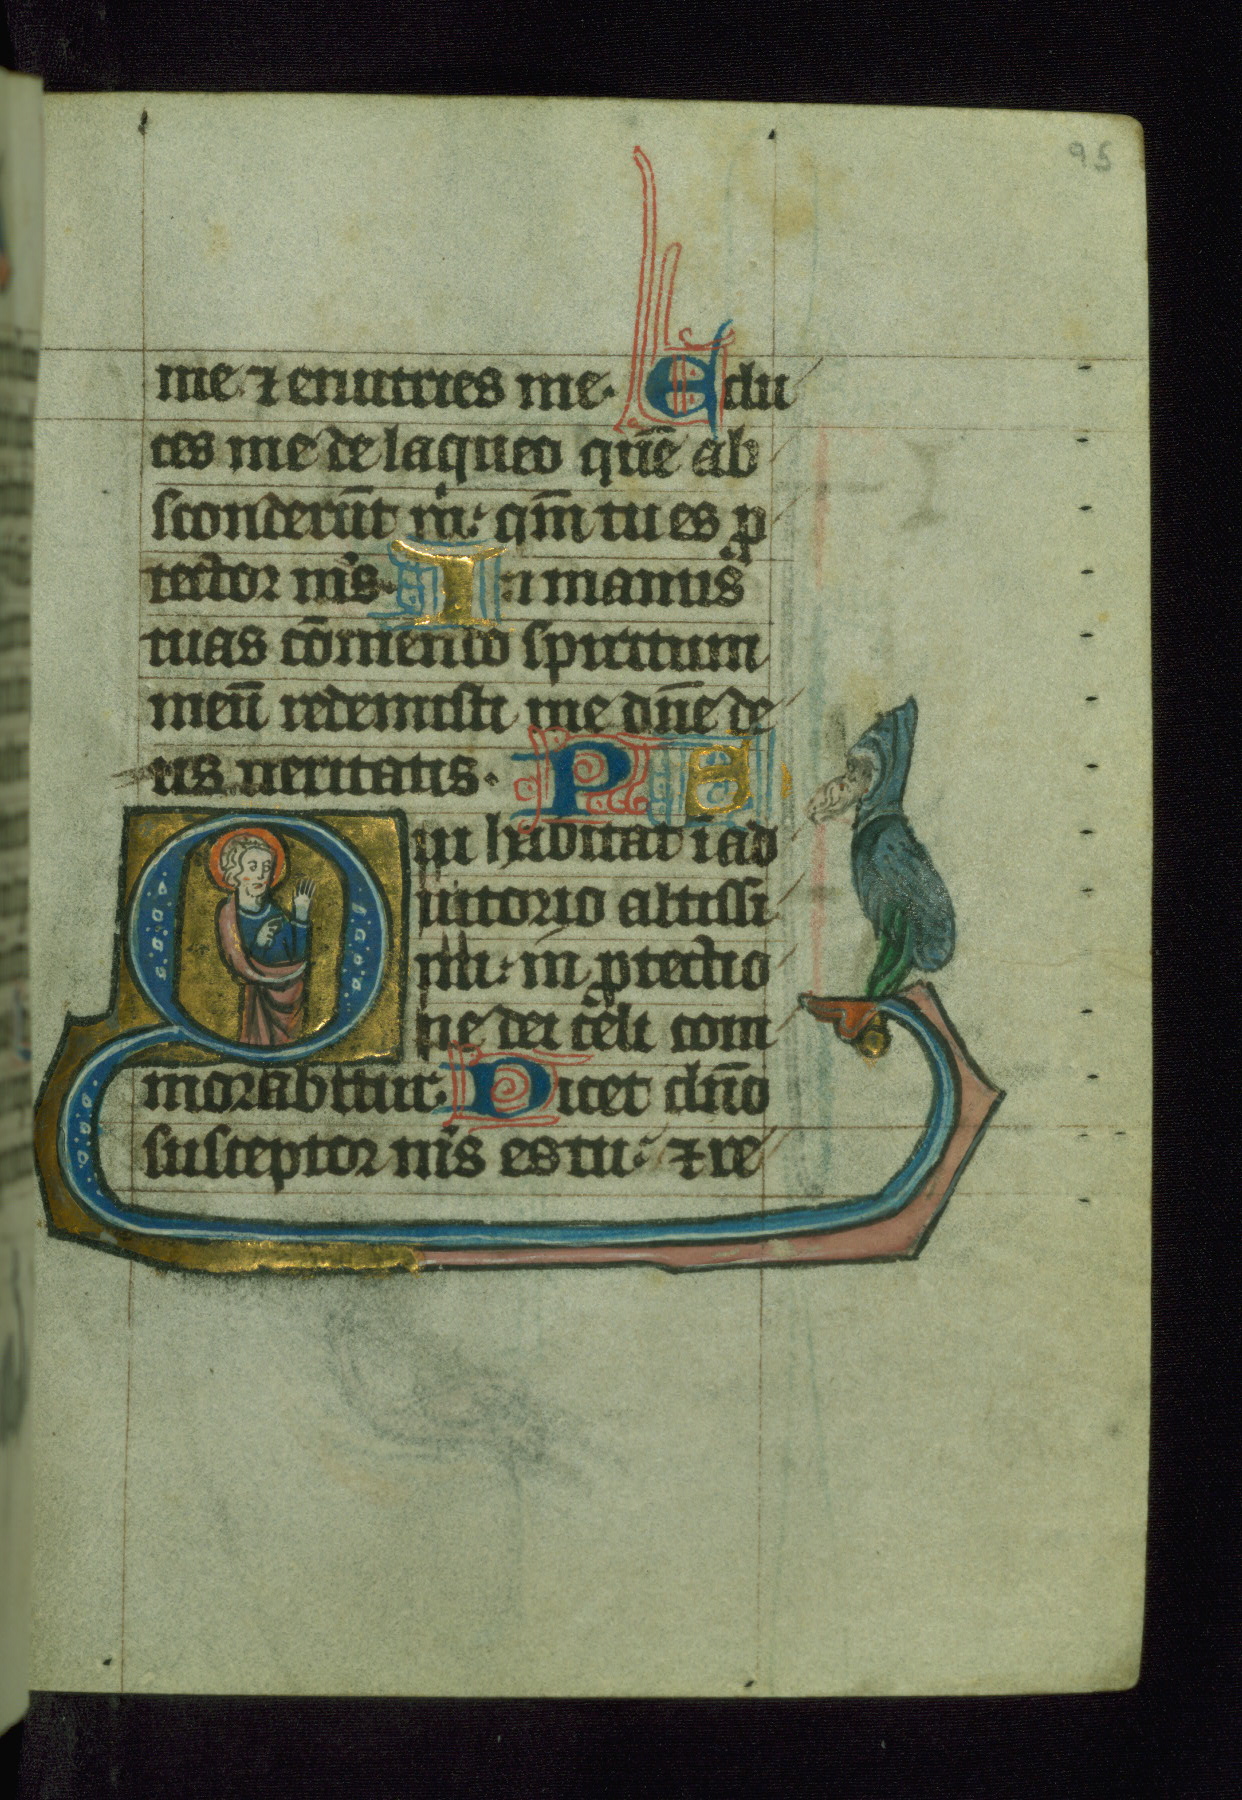 95
me ⁊ enutries me. Edu
ces me de laqueo quē ab
sconderūt m̄i: qm̄ tu es p
tector m̄s. In manus
tuas cōmendo spiritum
meū redemisti me dn̄e de
us ueritatis. P S
Qui habitat i ad
iutorio altissi
mi: in ptectio
ne dei celi com
morabitur. Dicet dn̄o
susceptor m̄s es tu: ⁊ re